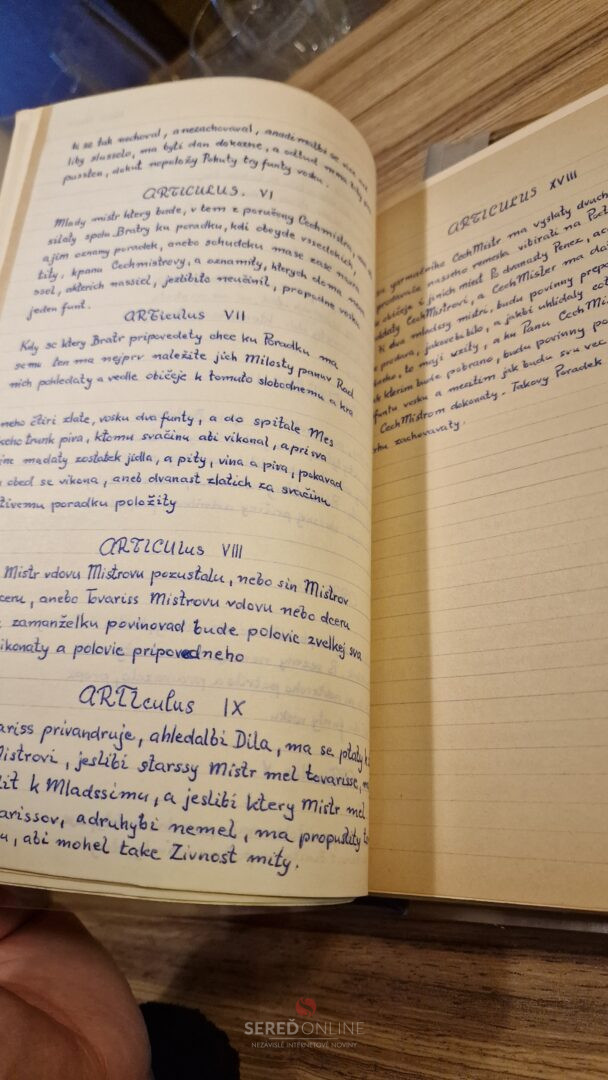 ti se tak nechoval, a nezachovaval,
liby slusselo, ma byti dan dokazne, a odtud nema byti
pussten, dokut nepoložy Pokuty try funty vosku.
ARTICULUS. VI
Mlady mistr ktery bude, v tem z poručeny Cechmistra, ma
silaty spolu Bratry ku poradku, kdi obeyde vssedokich,
a jim oznamy poradek, anebo schudcku mase zase navra
tity, kpanu Cechmistrovy, a oznamity, kterych doma nena
ssel, akterich nassiel, jestlibito neučinil, propadne vosku
jeden funt.
ARTICULUS VII
Kdy se ktery Bratr pripovedety chce ku Poradku ma
semu ten ma nejprv naležite jich Milosty panuv Rad
nich pohledaty a vedle običeje k tomuto slobodnemu a kra
neho čtiri zlate, vosku dva funty, a do spitale Mes
keho trunk piva, ktomu svačinu abi vikonal, a pri sva
ine madaty zostatek jidla, a pity, vina a piva, pokavad
obed se vikona, aneb dvanast zlatich za svačinu
tivemu poradku položity
ARTICULUS VIII
Mistr vdovu Mistrovu pozustalu, nebo sin Mistrov
ceru, anebo Tovariss Mistrovu vdovu nebo dceru
zamanželku povinovad bude polovic zvelkej sva
ikonaty a polovic pripovedneho
ARTICULUS IX
ariss privandruje, ahledalbi Dila, ma se ptaty k
Mistrovi, jeslibi starssy Mistr mel tovarisse, m
dit k Mladssimu, a jeslibi ktery Mistr mel
arissov, adruhybi nemel, ma propustity to
u, abi mohel take Zivnost mity.
ARTICULUS XVIII
garmačniho CechMistr ma vyslaty dvuch
običeje i jinich miest Po dvanasty Penez, ac
skladaty CechMistrovi, a CechMister ma da
K dva mladssy mistri, budu povinny prepo
prodava, jakove bi bilo, a jakbi uhlidaly cot
to maji vzity, a ku Panu CechMi
ak kterim bude pobrano, budu povinny po
funtu vosku a mezitim jak budu svu vec
CechMistrom dokonaty. Takovy Poradek
zachovavaty.
SEREĎONLINE
NEZÁVISLÉ INTERNETOVÉ NOVINY